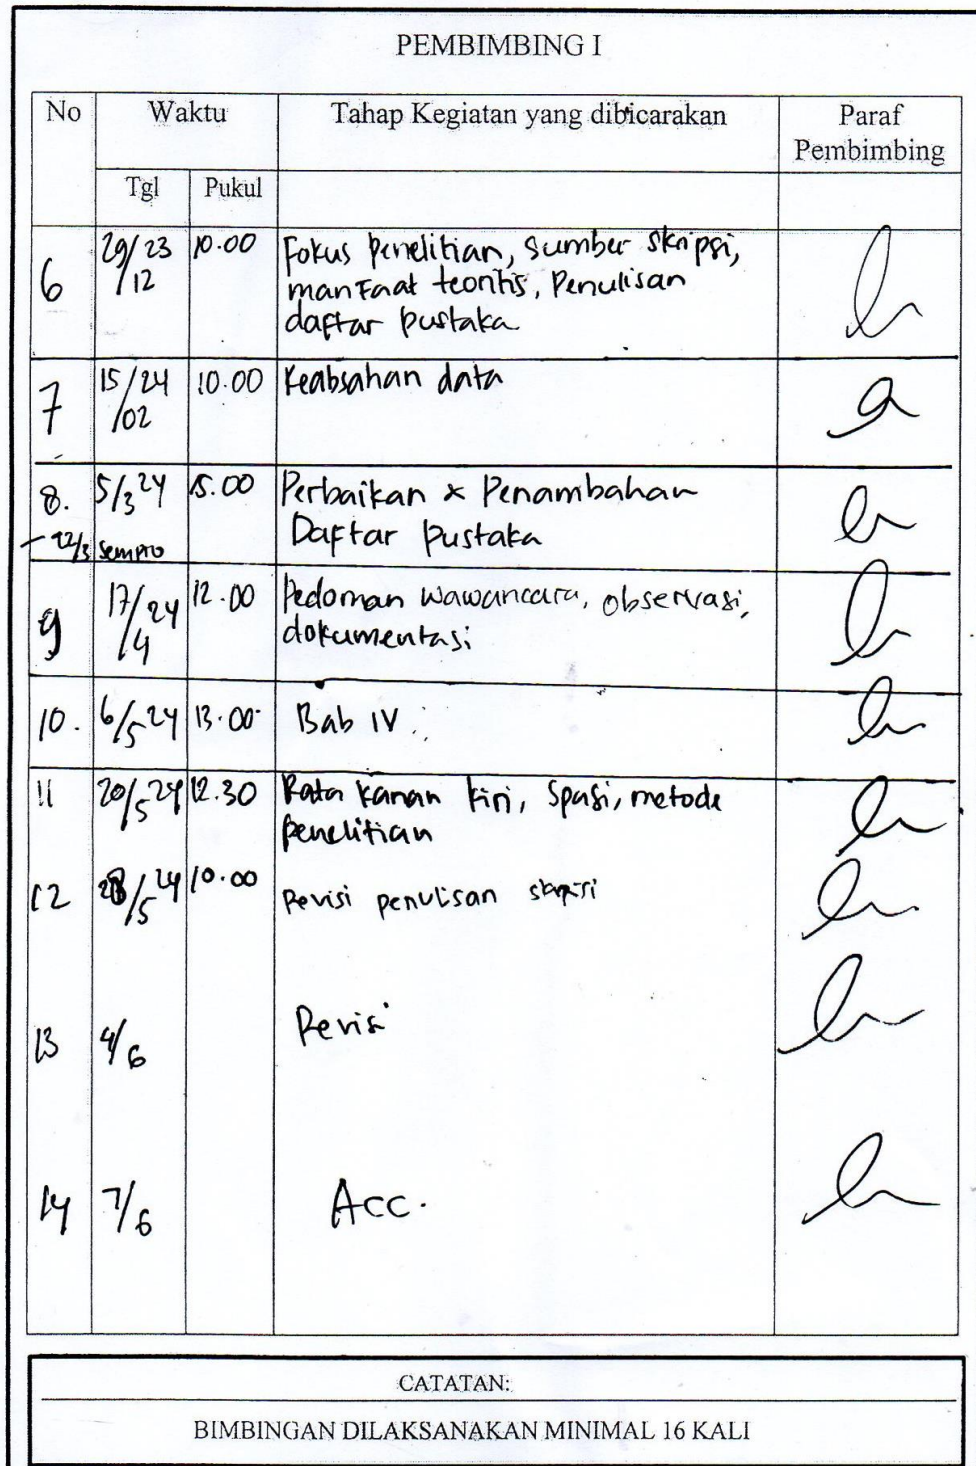 PEMBIMBING I
No Waktu Tahap Kegiatan yang dibicarakan Paraf
Pembimbing
Tgl Pukul
6 29/23 10.00 Fokus penelitian, sumber skripsi,
/12 manfaat teoritis, Penulisan
daftar pustaka
7 15/24 10.00 Keabsahan data
/02
8. 5/3 24 15.00 Perbaikan & Penambahan
- 22/3 sempro Daftar Pustaka
9 17/24 12.00 Pedoman wawancara, observasi,
/4 dokumentasi
10. 6/5 24 13.00 Bab IV
11 20/5 24 12.30 Rata kanan kiri, Spasi, metode
penelitian
12 28/5 24 10.00 Revisi penulisan skripsi
13 4/6 Revisi
14 7/6 Acc.
CATATAN:
BIMBINGAN DILAKSANAKAN MINIMAL 16 KALI